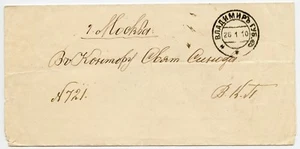 г. Москва.
ВЛАДИМИРЪ ГУБ.
20 1 10
Въ Контору Свят. Синода
N 721.
В. К. П.